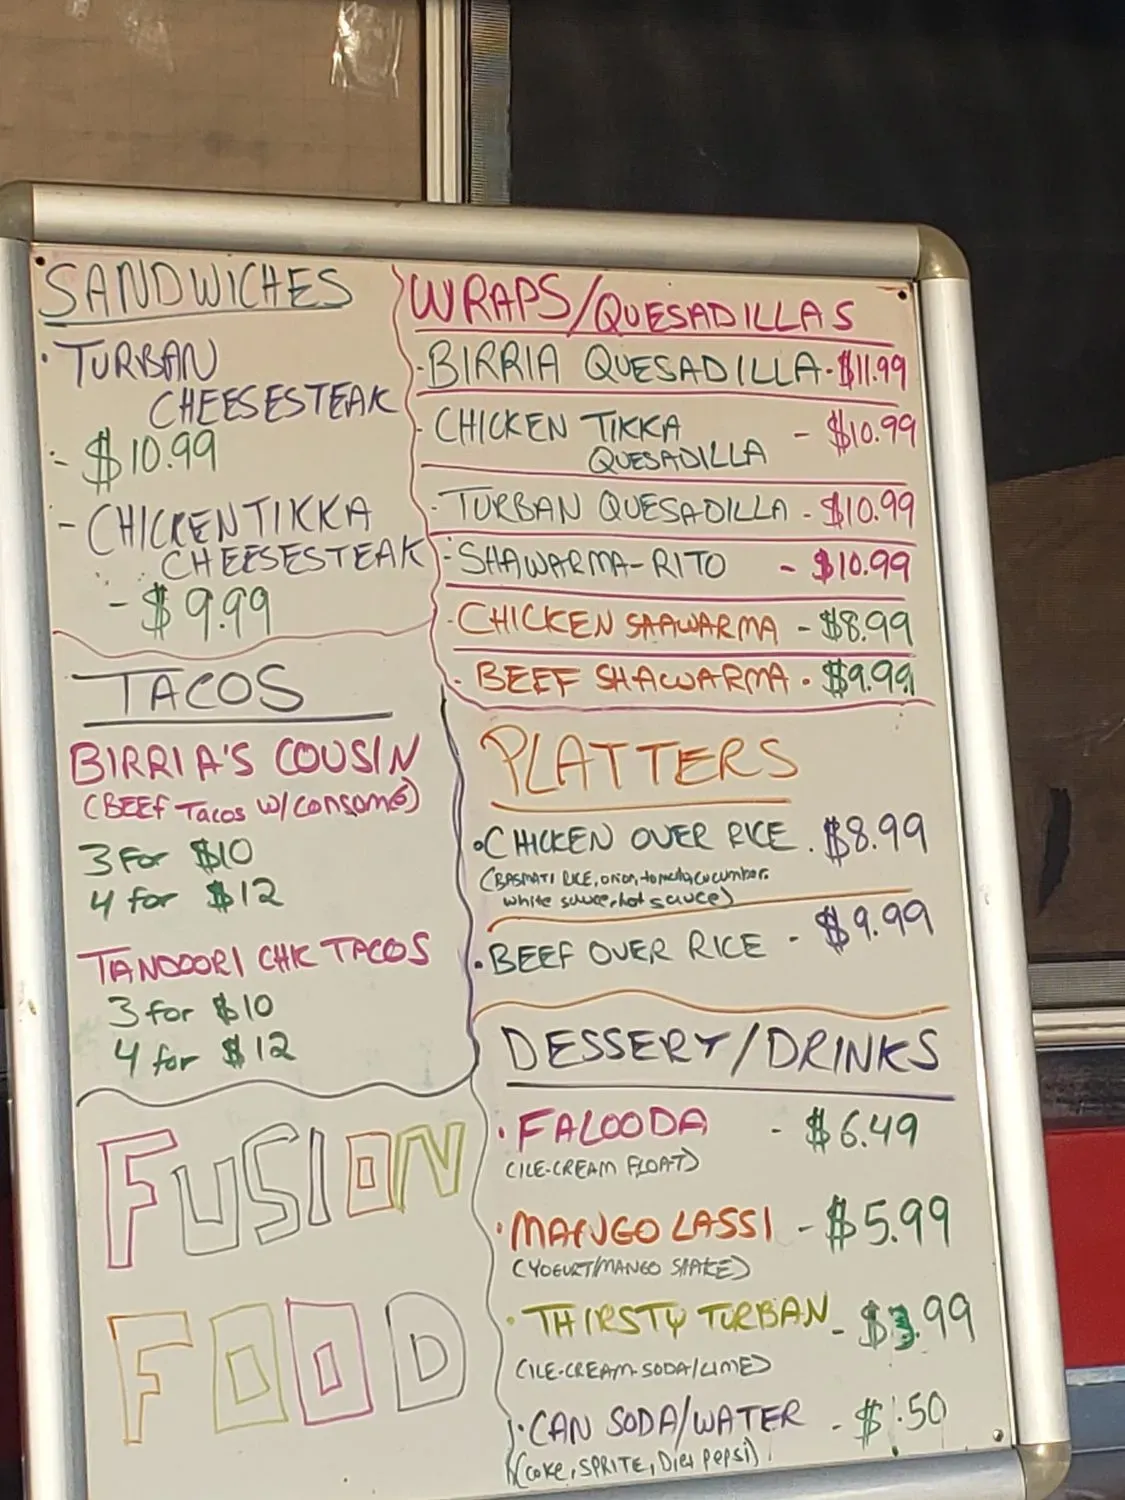 SANDWICHES
• TURBAN
CHEESESTEAK
- $10.99
- CHICKEN TIKKA
CHEESESTEAK
- $9.99
TACOS
BIRRIA'S COUSIN
(BEEF Tacos W/Consomé)
3 For $10
4 for $12
TANDOORI CHK TACOS
3 for $10
4 for $12
FUSION
FOOD
WRAPS/QUESADILLAS
- BIRRIA QUESADILLA - $11.99
- CHICKEN TIKKA - $10.99
QUESADILLA
- TURBAN QUESADILLA - $10.99
- SHAWARMA-RITO - $10.99
- CHICKEN SHAWARMA - $8.99
- BEEF SHAWARMA - $9.99
PLATTERS
• CHICKEN OVER RICE - $8.99
(BASMATI RICE, onion, tomato, cucumber,
white sauce, hot sauce)
• BEEF OVER RICE - $9.99
DESSERT/DRINKS
• FALOODA - $6.49
(ICE-CREAM FLOAT)
• MANGO LASSI - $5.99
(YOGURT/MANGO SHAKE)
• THIRSTY TURBAN - $3.99
(ICE-CREAM-SODA/LIME)
• CAN SODA/WATER - $1.50
(Coke, SPRITE, Diet Pepsi)